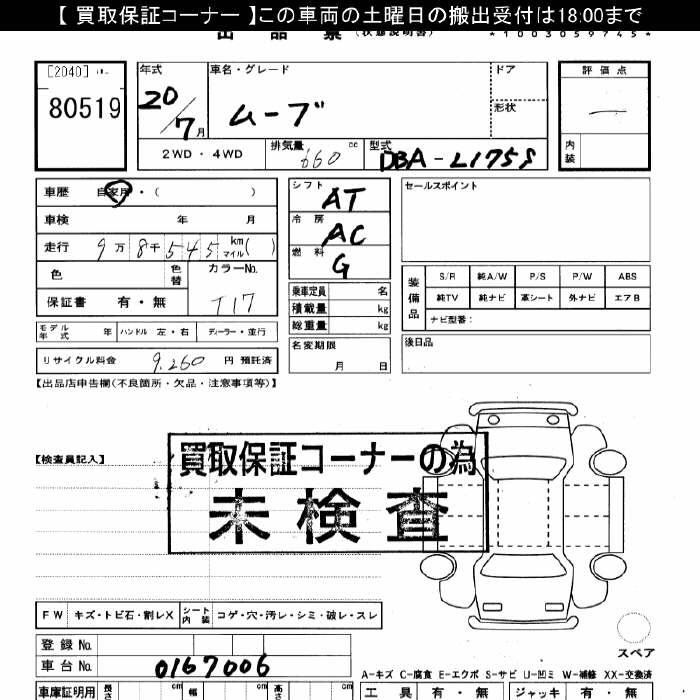 【 買取保証コーナー 】この車両の土曜日の搬出受付は18:00まで
出品票 (状態説明書) *1003059745*
[2040]
80519
年式 20/7月
車名・グレード ムーブ
ドア
形状
2WD ・ 4WD
排気量 660 cc
型式 DBA-L175S
評価点
内装
車歴 自家用 ・ ( )
車検 年 月
走行 9万8千545 km マイル ( )
色 色替 カラーNo. T17
保証書 有・無
モデル年式 年 ハンドル 左・右 ディーラー・並行
リサイクル料金 9,260 円 預託済
シフト AT
冷房 AC
燃料 G
乗車定員 名
積載量 kg
総重量 kg
名変期限 月 日
セールスポイント
装備品
S/R 純A/W P/S P/W ABS
純TV 純ナビ 革シート 外ナビ エアB
ナビ型番:
後日品
【出品店申告欄(不良箇所・欠品・注意事項等)】
【検査員記入】
買取保証コーナーの為
未検査
FW キズ・トビ石・割レX シート内装 コゲ・穴・汚レ・シミ・破レ・スレ
登録No.
車台No. 0167006
車庫証明用 長さ cm 幅 cm 高さ cm
スペア
A-キズ C-腐食 E-エクボ S-サビ U-凹ミ W-補修 XX-交換済
工具 有・無 ジャッキ 有・無